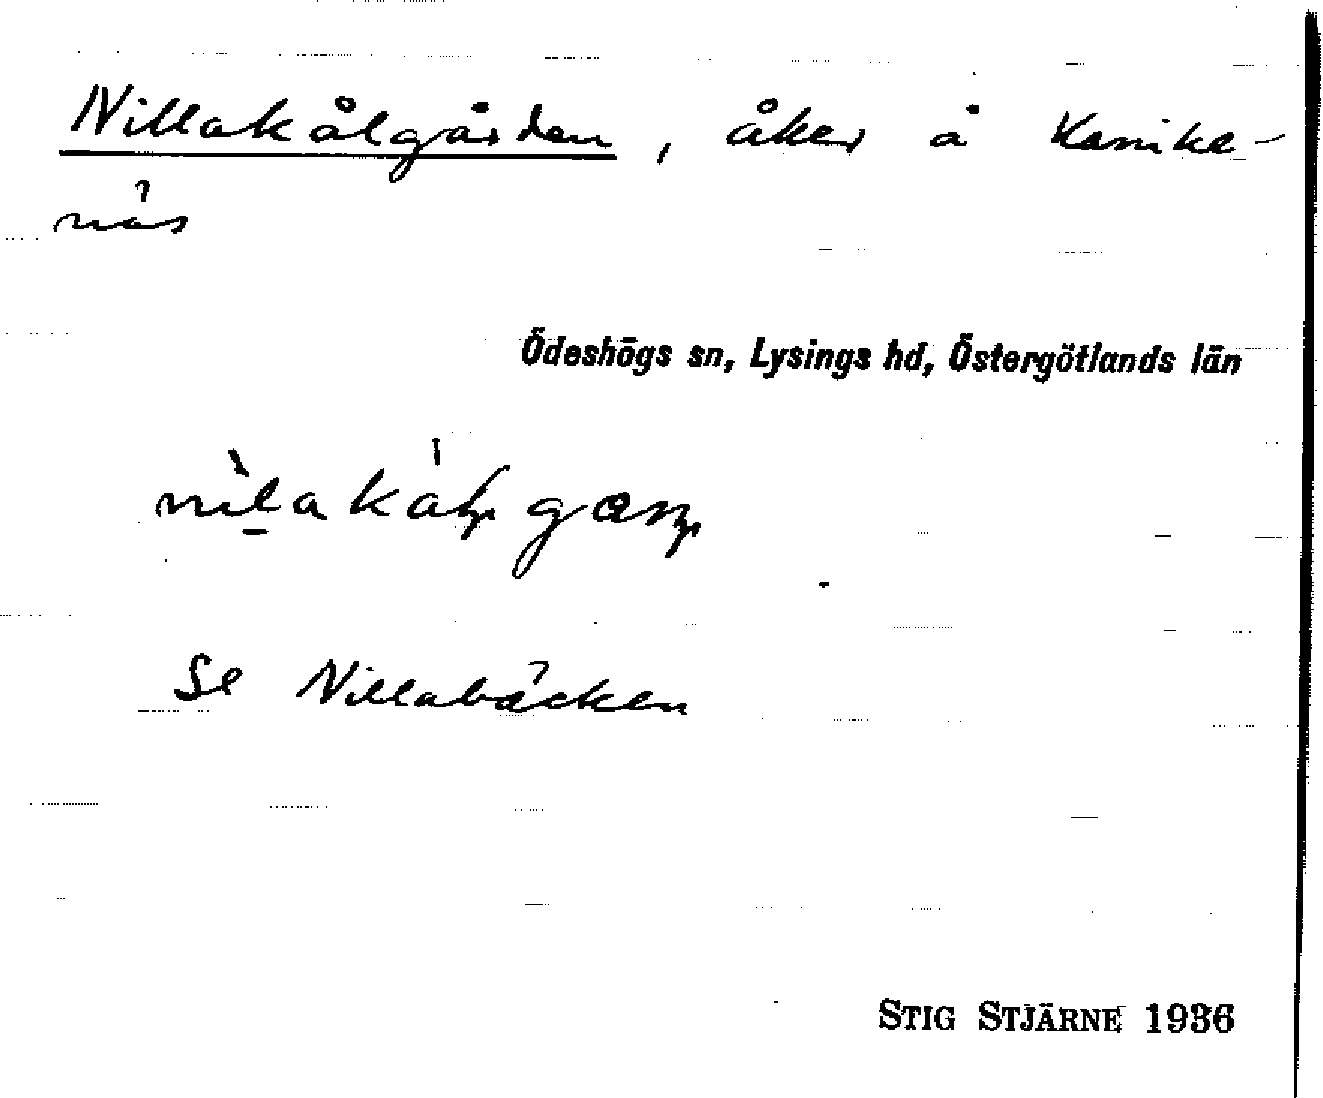 Nillakålgården, åker å Kanike-
näs
Ödeshögs sn, Lysings hd, Östergötlands län
Se Nillabäcken
STIG STJÄRNE 1936